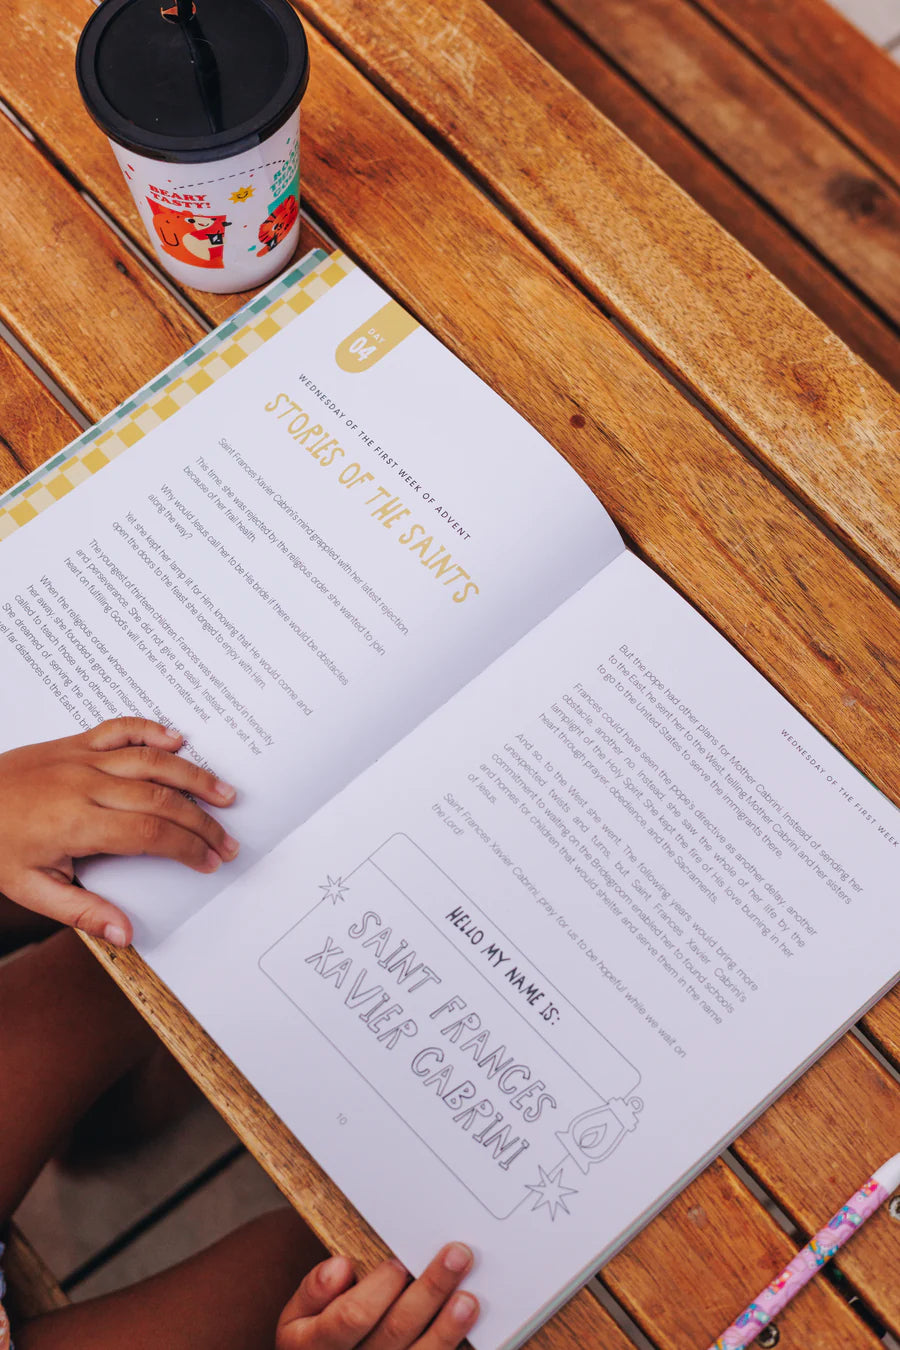 BEARY
TASTY!
DAY
04
WEDNESDAY OF THE FIRST WEEK OF ADVENT
STORIES OF THE SAINTS
Saint Frances Xavier Cabrini's mind grappled with her latest rejection.
This time, she was rejected by the religious order she wanted to join
because of her frail health.
Why would Jesus call her to be His bride if there would be obstacles
along the way?
Yet she kept her lamp lit for Him, knowing that He would come and
open the doors to the feast she longed to enjoy with Him.
The youngest of thirteen children, Frances was well trained in tenacity
and perseverance. She did not give up easily. Instead, she set her
heart on fulfilling God's will for her life, no matter what.
When the religious order whose members taught
her away, she founded a group of missionar
called to teach those who otherwise
She dreamed of serving the childre
far distances to the East to
WEDNESDAY OF THE FIRST WEEK
But the pope had other plans for Mother Cabrini. Instead of sending her
to the East, he sent her to the West, telling Mother Cabrini and her sisters
to go to the United States to serve the immigrants there.
Frances could have seen the pope's directive as another delay, another
obstacle, another no. Instead, she saw the whole of her life by the
lamplight of the Holy Spirit. She kept the fire of His love burning in her
heart through prayer, obedience and the Sacraments.
And so, to the West she went. The following years would bring more
unexpected twists and turns, but Saint Frances Xavier Cabrini's
commitment to waiting on the Bridegroom enabled her to found schools
and homes for children that would shelter and serve them in the name
of Jesus.
Saint Frances Xavier Cabrini, pray for us to be hopeful while we wait on
the Lord!
HELLO MY NAME IS:
SAINT FRANCES
XAVIER CABRINI
10